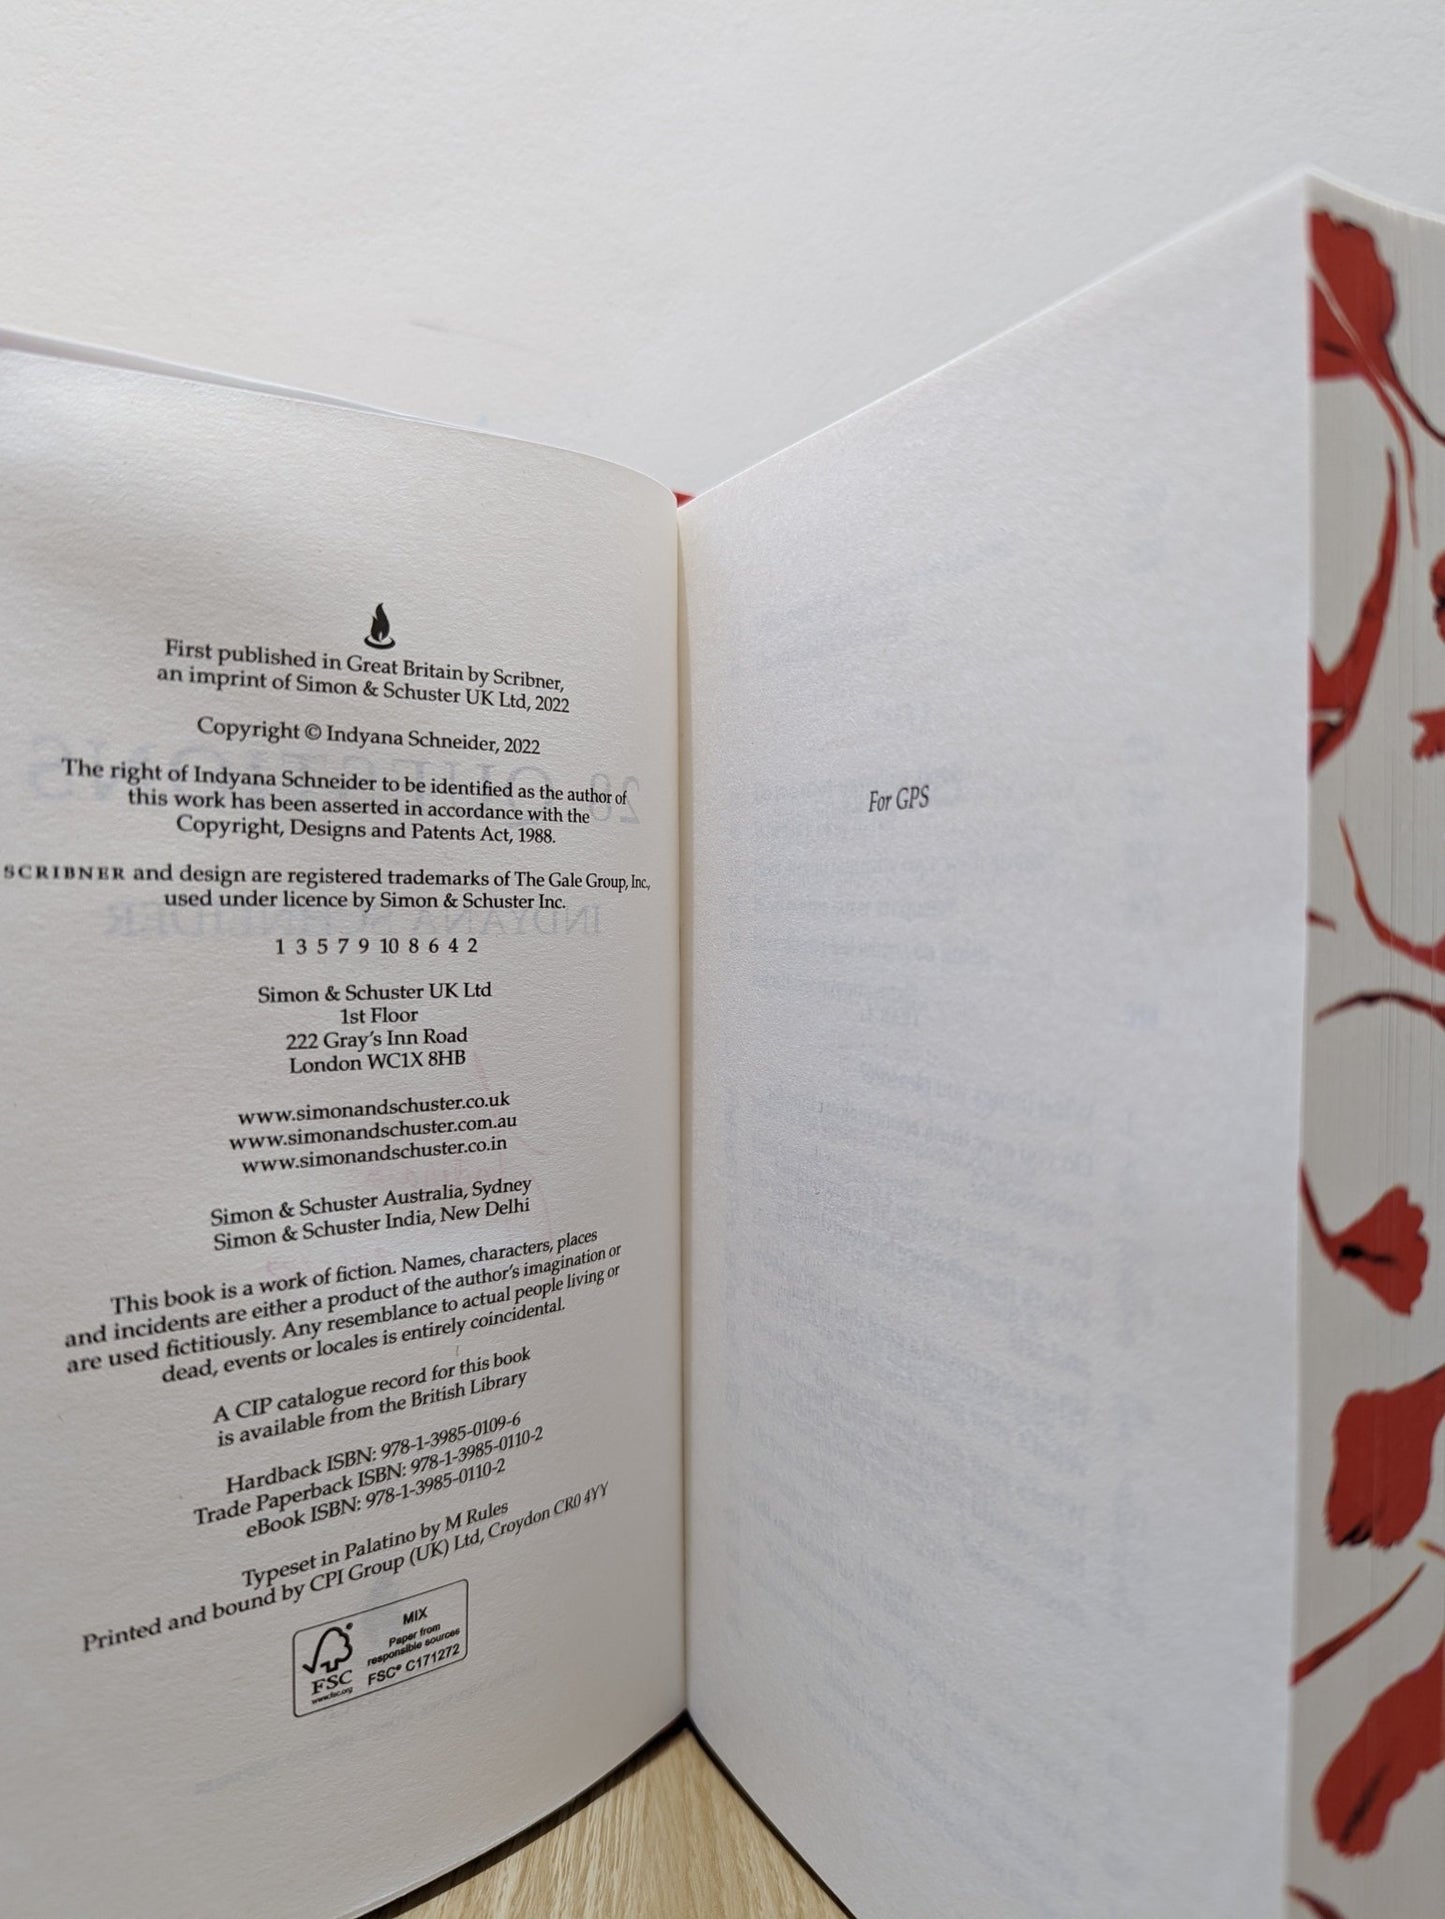 First published in Great Britain by Scribner,
an imprint of Simon & Schuster UK Ltd, 2022
Copyright © Indyana Schneider, 2022
The right of Indyana Schneider to be identified as the author of
this work has been asserted in accordance with the
Copyright, Designs and Patents Act, 1988.
SCRIBNER and design are registered trademarks of The Gale Group, Inc.,
used under licence by Simon & Schuster Inc.
1 3 5 7 9 10 8 6 4 2
Simon & Schuster UK Ltd
1st Floor
222 Gray's Inn Road
London WC1X 8HB
www.simonandschuster.co.uk
www.simonandschuster.com.au
www.simonandschuster.co.in
Simon & Schuster Australia, Sydney
Simon & Schuster India, New Delhi
This book is a work of fiction. Names, characters, places
and incidents are either a product of the author's imagination or
are used fictitiously. Any resemblance to actual people living or
dead, events or locales is entirely coincidental.
A CIP catalogue record for this book
is available from the British Library
Hardback ISBN: 978-1-3985-0109-6
Trade Paperback ISBN: 978-1-3985-0110-2
eBook ISBN: 978-1-3985-0110-2
Typeset in Palatino by M Rules
Printed and bound by CPI Group (UK) Ltd, Croydon CR0 4YY
FSC
www.fsc.org
MIX
Paper from
responsible sources
FSC® C171272
For GPS